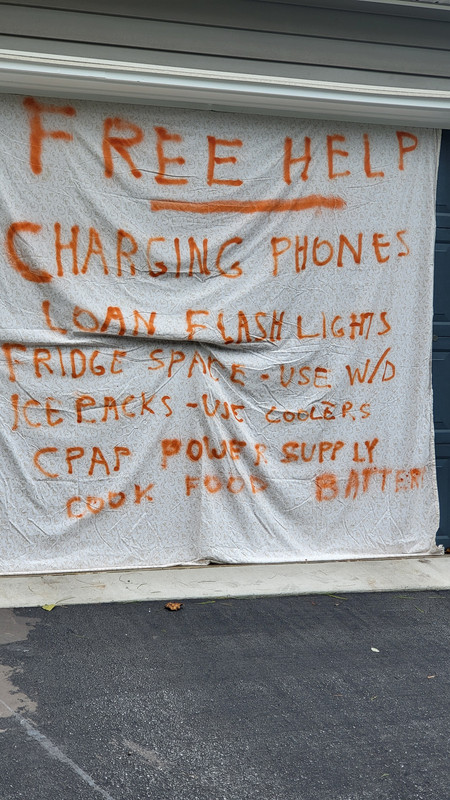 FREE HELP
CHARGING PHONES
LOAN FLASH LIGHTS
FRIDGE SPACE - USE W/D
ICE PACKS - USE COOLERS
CPAP POWER SUPPLY
COOK FOOD BATTERY